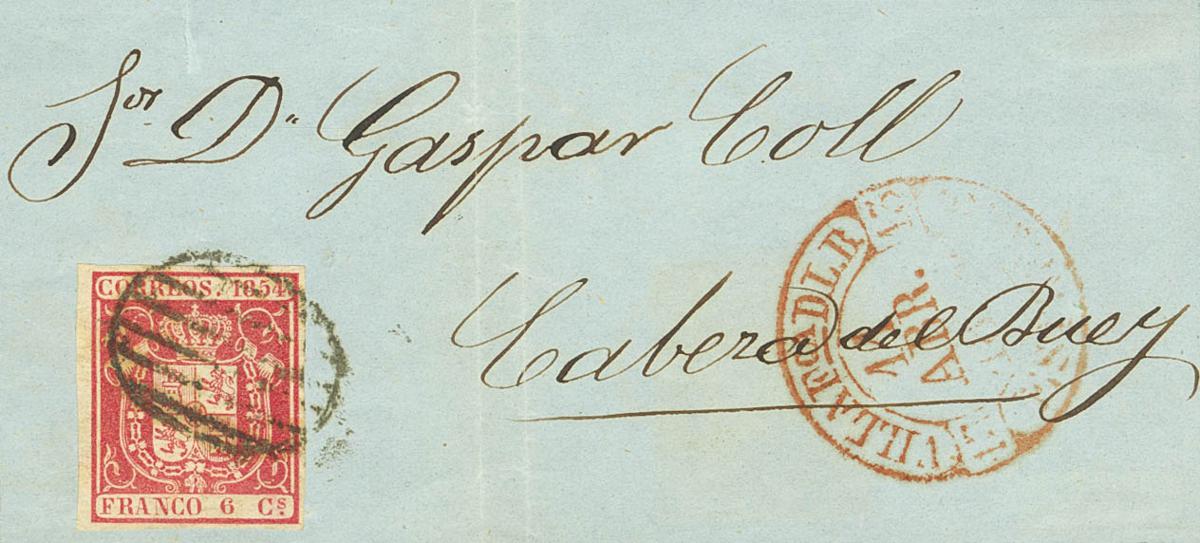 Sor Dn Gaspar Coll
Cabeza del Buey
CORREOS 1854
FRANCO 6 Cs.
VILLAR.ADLR
ABR.